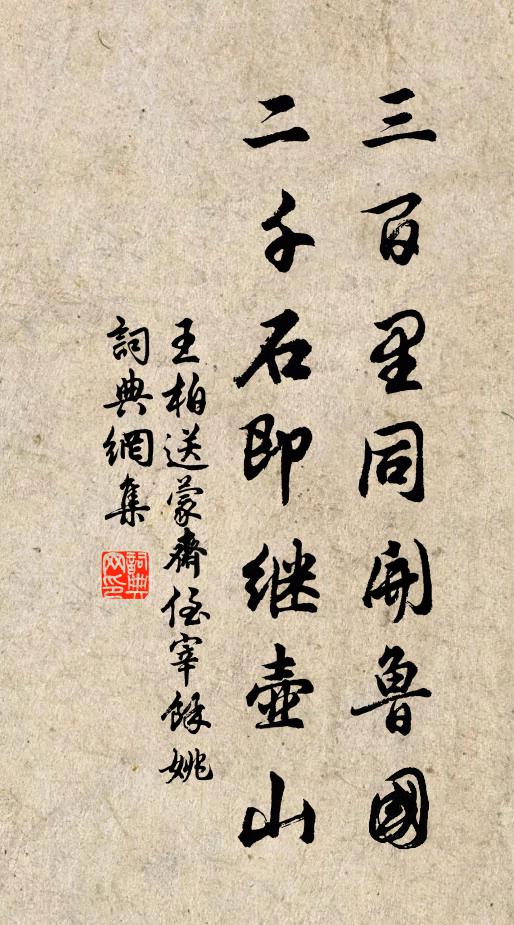 三百里同開魯國
二千石即继壺山
王柏送蒙齋侄宰餘姚
詞典網集
詞典网印